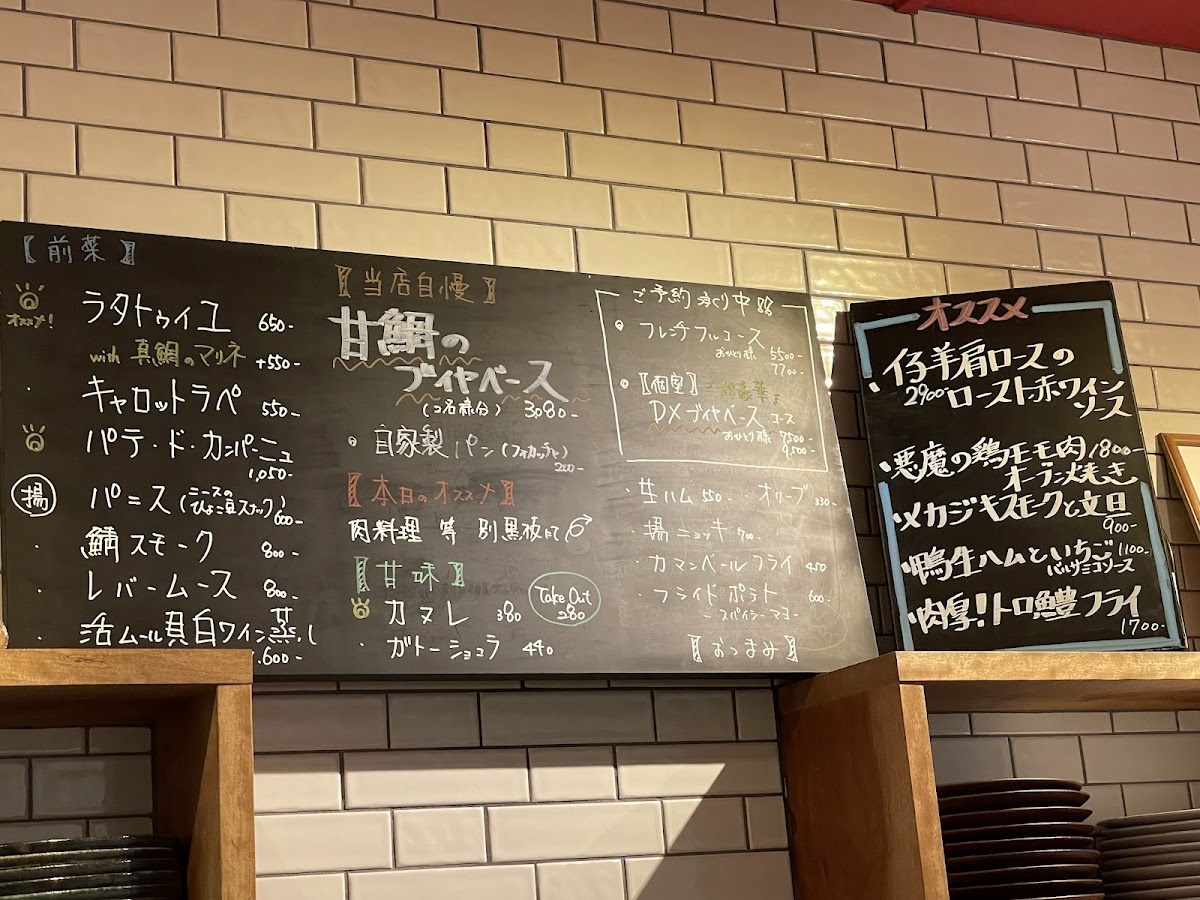 【前菜】
オススメ!
ラタトゥイユ 650-
with 真鯛のマリネ +550-
・キャロットラペ 550-
パテ・ド・カンパーニュ
1,050-
揚 パニス(ニースのひよこ豆スナック) 600-
・鯖スモーク 800-
・レバームース 800-
・活ムール貝白ワイン蒸し
1.600-
【当店自慢】
甘鯛の
ブイヤベース
(2名様分) 3080-
自家製パン(フォカッチャ)
200-
【本日のオススメ】
肉料理 等 別黒板にて
【甘味】
カヌレ 380
Take Out
280
・ガトーショコラ 440
ご予約 承り中
フレンチフルコース
おひとり様 5500-
7700-
【個室】
DXブイヤベース コース
おひとり様 7500-
9,500-
・生ハム 550- ・オリーブ 330-
・揚ニョッキ 700-
・カマンベールフライ 450
・フライドポテト 600-
- スパイシーマヨ -
【おつまみ】
オススメ
仔羊肩ロースの
2900- ロースト・赤ワイン
ソース
悪魔の鶏モモ肉 1800-
オーブン焼き
メカジキスモークと文旦
900-
鴨生ハムといちご 1100-
バルサミコソース
肉厚!トロ鱧フライ
1700-